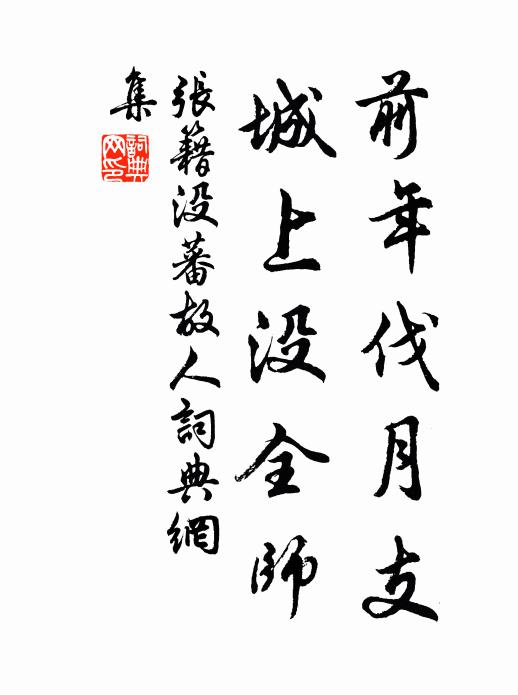 前年伐月支
城上没全師
張籍没蕃故人詞典網
集
詞典網印